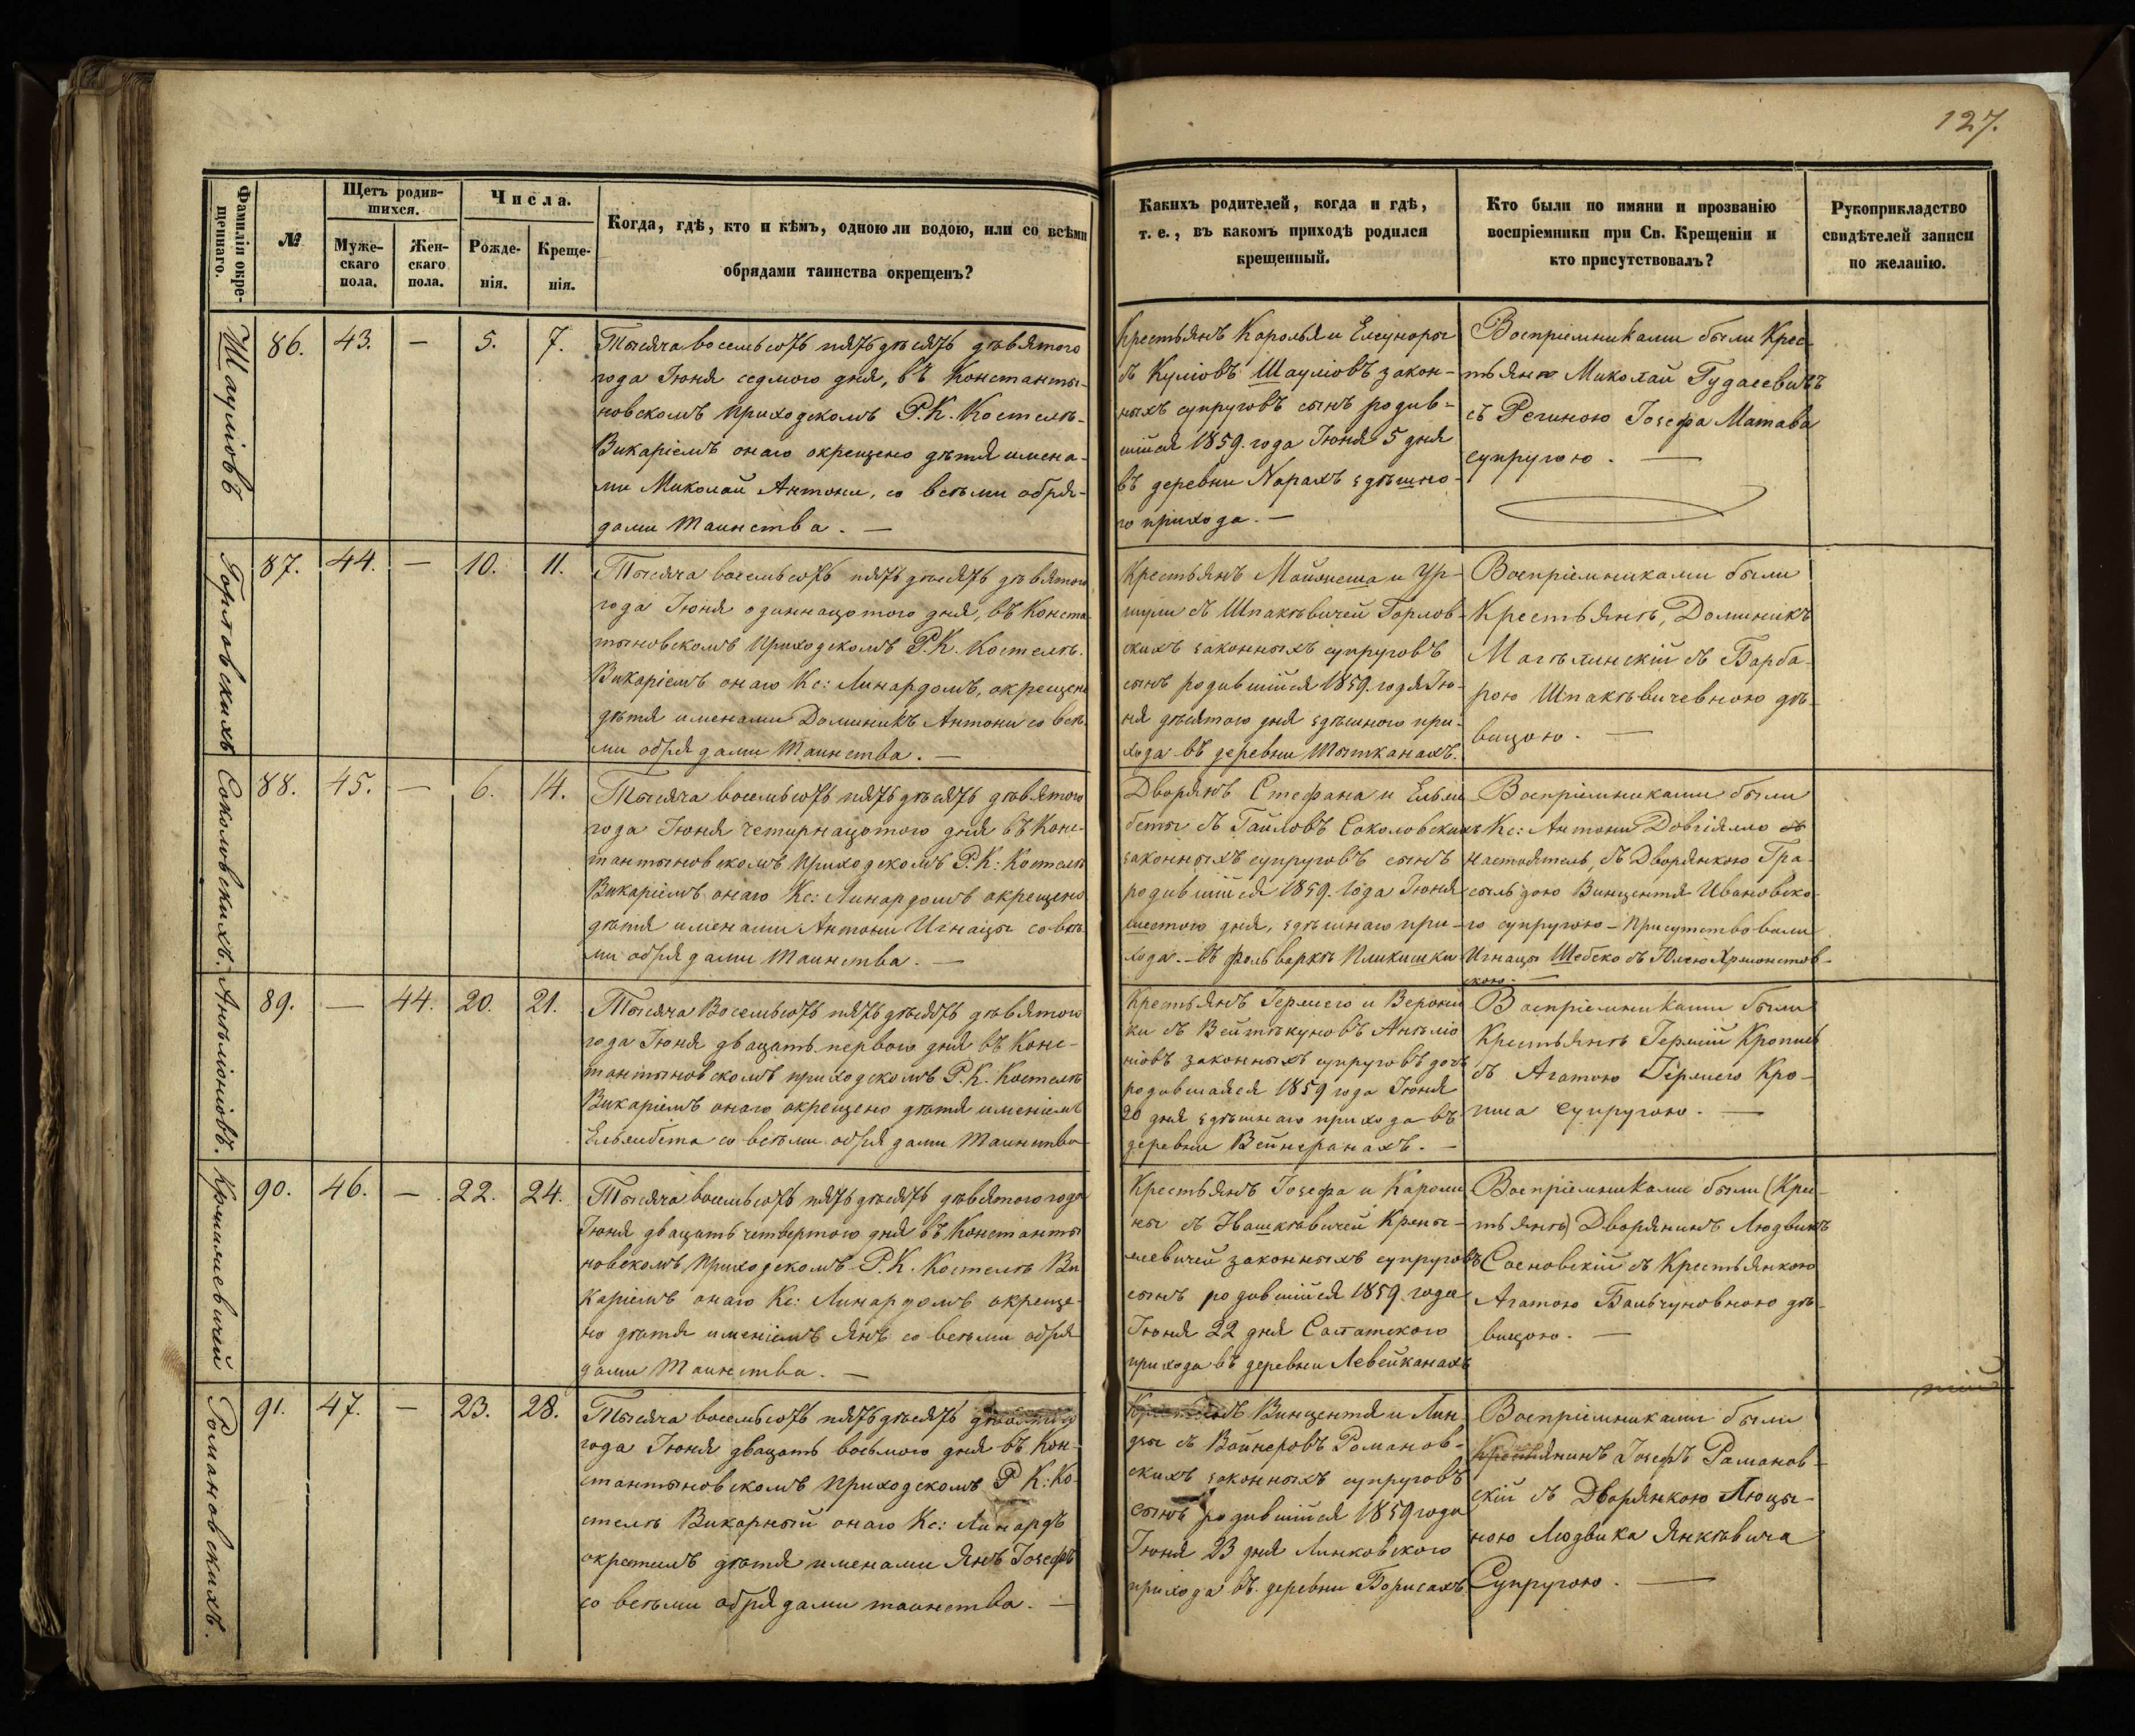 127.
Фамилія окре-
щеннаго.
№
Щетъ родив-
шихся.
Муже-
скаго
пола.
Жен-
скаго
пола.
Числа.
Рожде-
нія.
Креще-
нія.
Когда, гдѣ, кто и кѣмъ, одною ли водою, или со всѣми
обрядами таинства окрещенъ?
Какихъ родителей, когда и гдѣ,
т. е., въ какомъ приходѣ родился
крещенный.
Кто были по имяни и прозванію
воспріемники при Св. Крещеніи и
кто присутствовалъ?
Рукоприкладство
свидѣтелей записи
по желанію.
Шауліовъ
86. 43. — 5. 7.
Тысяча восемьсотъ пятьдѣсятъ дѣвятого
года Іюня седмого дня, въ Константы-
новскомъ приходскомъ Р. К. Костелѣ-
Викаріемъ онаго окрещено дѣтя имена-
ми Миколай Антони, со всѣми обря-
дами таинства. —
Крестьянъ Кароля и Елеуноры
съ Куліовъ Шауліовъ закон-
ныхъ супруговъ сынъ родив-
шійся 1859. года Іюня 5 дня
въ деревни Норахъ здѣшно-
го прихода. —
Воспріемниками были Крес-
тьяне Миколай Гудасевичъ
съ Региною Іозефа Матава
супругою. —
Горловскихъ
87. 44. — 10. 11.
Тысяча восемьсотъ пятьдѣсятъ дѣвятого
года Іюня одиннацотого дня, въ Конста-
тыновскомъ приходскомъ Р. К. Костелѣ.
Викаріемъ онаго Кс: Линардомъ, окрещено
дѣтя именами Доминикъ Антони со всѣ-
ми обрядами таинства. —
Крестьянъ Мойжеша и Ур-
шули съ Шпакѣвичей Горлов-
скихъ законныхъ супруговъ
сынъ родившійся 1859. года Ію-
ня дѣсятого дня здѣшного при-
хода въ деревни Шыткянахъ.
Воспріемниками были
Крестьянѣ, Доминикъ
съ Барба-
рою Шпакѣвичевною дѣ-
вицою. —
Соколовскихъ.
88. 45. — 6. 14.
Тысяча восемьсотъ пятьдѣсятъ дѣвятого
года Іюня четырнацотого дня въ Конс-
тантыновскомъ приходскомъ Р. К: Костелѣ
Викаріемъ онаго Кс: Линардомъ окрещено
дѣтя именами Антони Игнацы со всѣ-
ми обрядами таинства. —
Дворянъ Стефана и Ельжи-
беты съ Гайловъ Соколовскихъ
законныхъ супруговъ сынъ
родившійся 1859. года Іюня
шестого дня, здѣшнаго при-
хода. — Въ фольваркѣ Пликишки
Воспріемниками были
Кс: Антони Довгіялло
настоятель, съ Дворянкою Гра-
сыльдою Винцентя Ивановско-
го супругою — Присутствовали
Игнацы Шебеко съ Юліею Хрщонстов-
скою. —
Ангѣліоніовъ.
89. — 44. 20. 21.
Тысяча Восемьсотъ пятьдѣсятъ дѣвятого
года Іюня двацать первого дня въ Конс-
тантыновскомъ приходскомъ Р. К. Костелѣ
Викаріемъ онаго окрещено дѣтя именіемъ
Ельжбета со всѣми обрядами таинства
Крестьянъ Гермего и Верони-
ки съ Вейтѣкуновъ Ангѣліо-
ніовъ законныхъ супруговъ дочь
родившаяся 1859 года Іюня
20 дня здѣшнаго прихода въ
деревни Вейнеранахъ. —
Воспріемниками были
Крестьянѣ Гермій Кропшъ
съ Агатою Гермего Кро-
пша Супругою. —
90. 46. — 22. 24.
Тысяча восемьсотъ пятьдѣсятъ дѣвятого года
Іюня двацать четвертого дня въ Константы-
новскомъ Приходскомъ Р. К. Костелѣ Ви-
каріемъ онаго Кс: Линардомъ окреще-
но дѣтя именіемъ Янъ со всѣми обря-
дами таинства. —
Крестьянъ Іозефа и Кароли-
ны съ Ивашкѣвичей
законныхъ супруговъ
сынъ родившійся 1859. года
Іюня 22 дня Солатского
прихода въ деревни Левейканахъ
Воспріемниками были (Крес-
тьянѣ) Дворянинъ Людвикъ
Сосновскій съ Крестьянкою
Агатою Бальчуновною дѣ-
вицою. —
Романовскихъ.
91. 47. — 23. 28.
Тысяча восемьсотъ пятьдѣсятъ дѣвятого
года Іюня двацать восьмого дня въ Кон-
стантыновскомъ приходскомъ Р К: Ко-
стелѣ Викарный онаго Кс: Линардъ
окрестилъ дѣтя именами Янъ Іозефъ
со всѣми обрядами таинства. —
Винцентя и Лин-
ды съ Войнеровъ Романов-
скихъ законныхъ супруговъ
сынъ родившійся 1859 года
Іюня 23 дня Линковского
прихода въ деревни Борисахъ
Воспріемниками были
Крестянинъ Іозефъ Романов-
скій съ Дворянкою Люцы-
ною Людвика Янкѣвича
Супругою. —